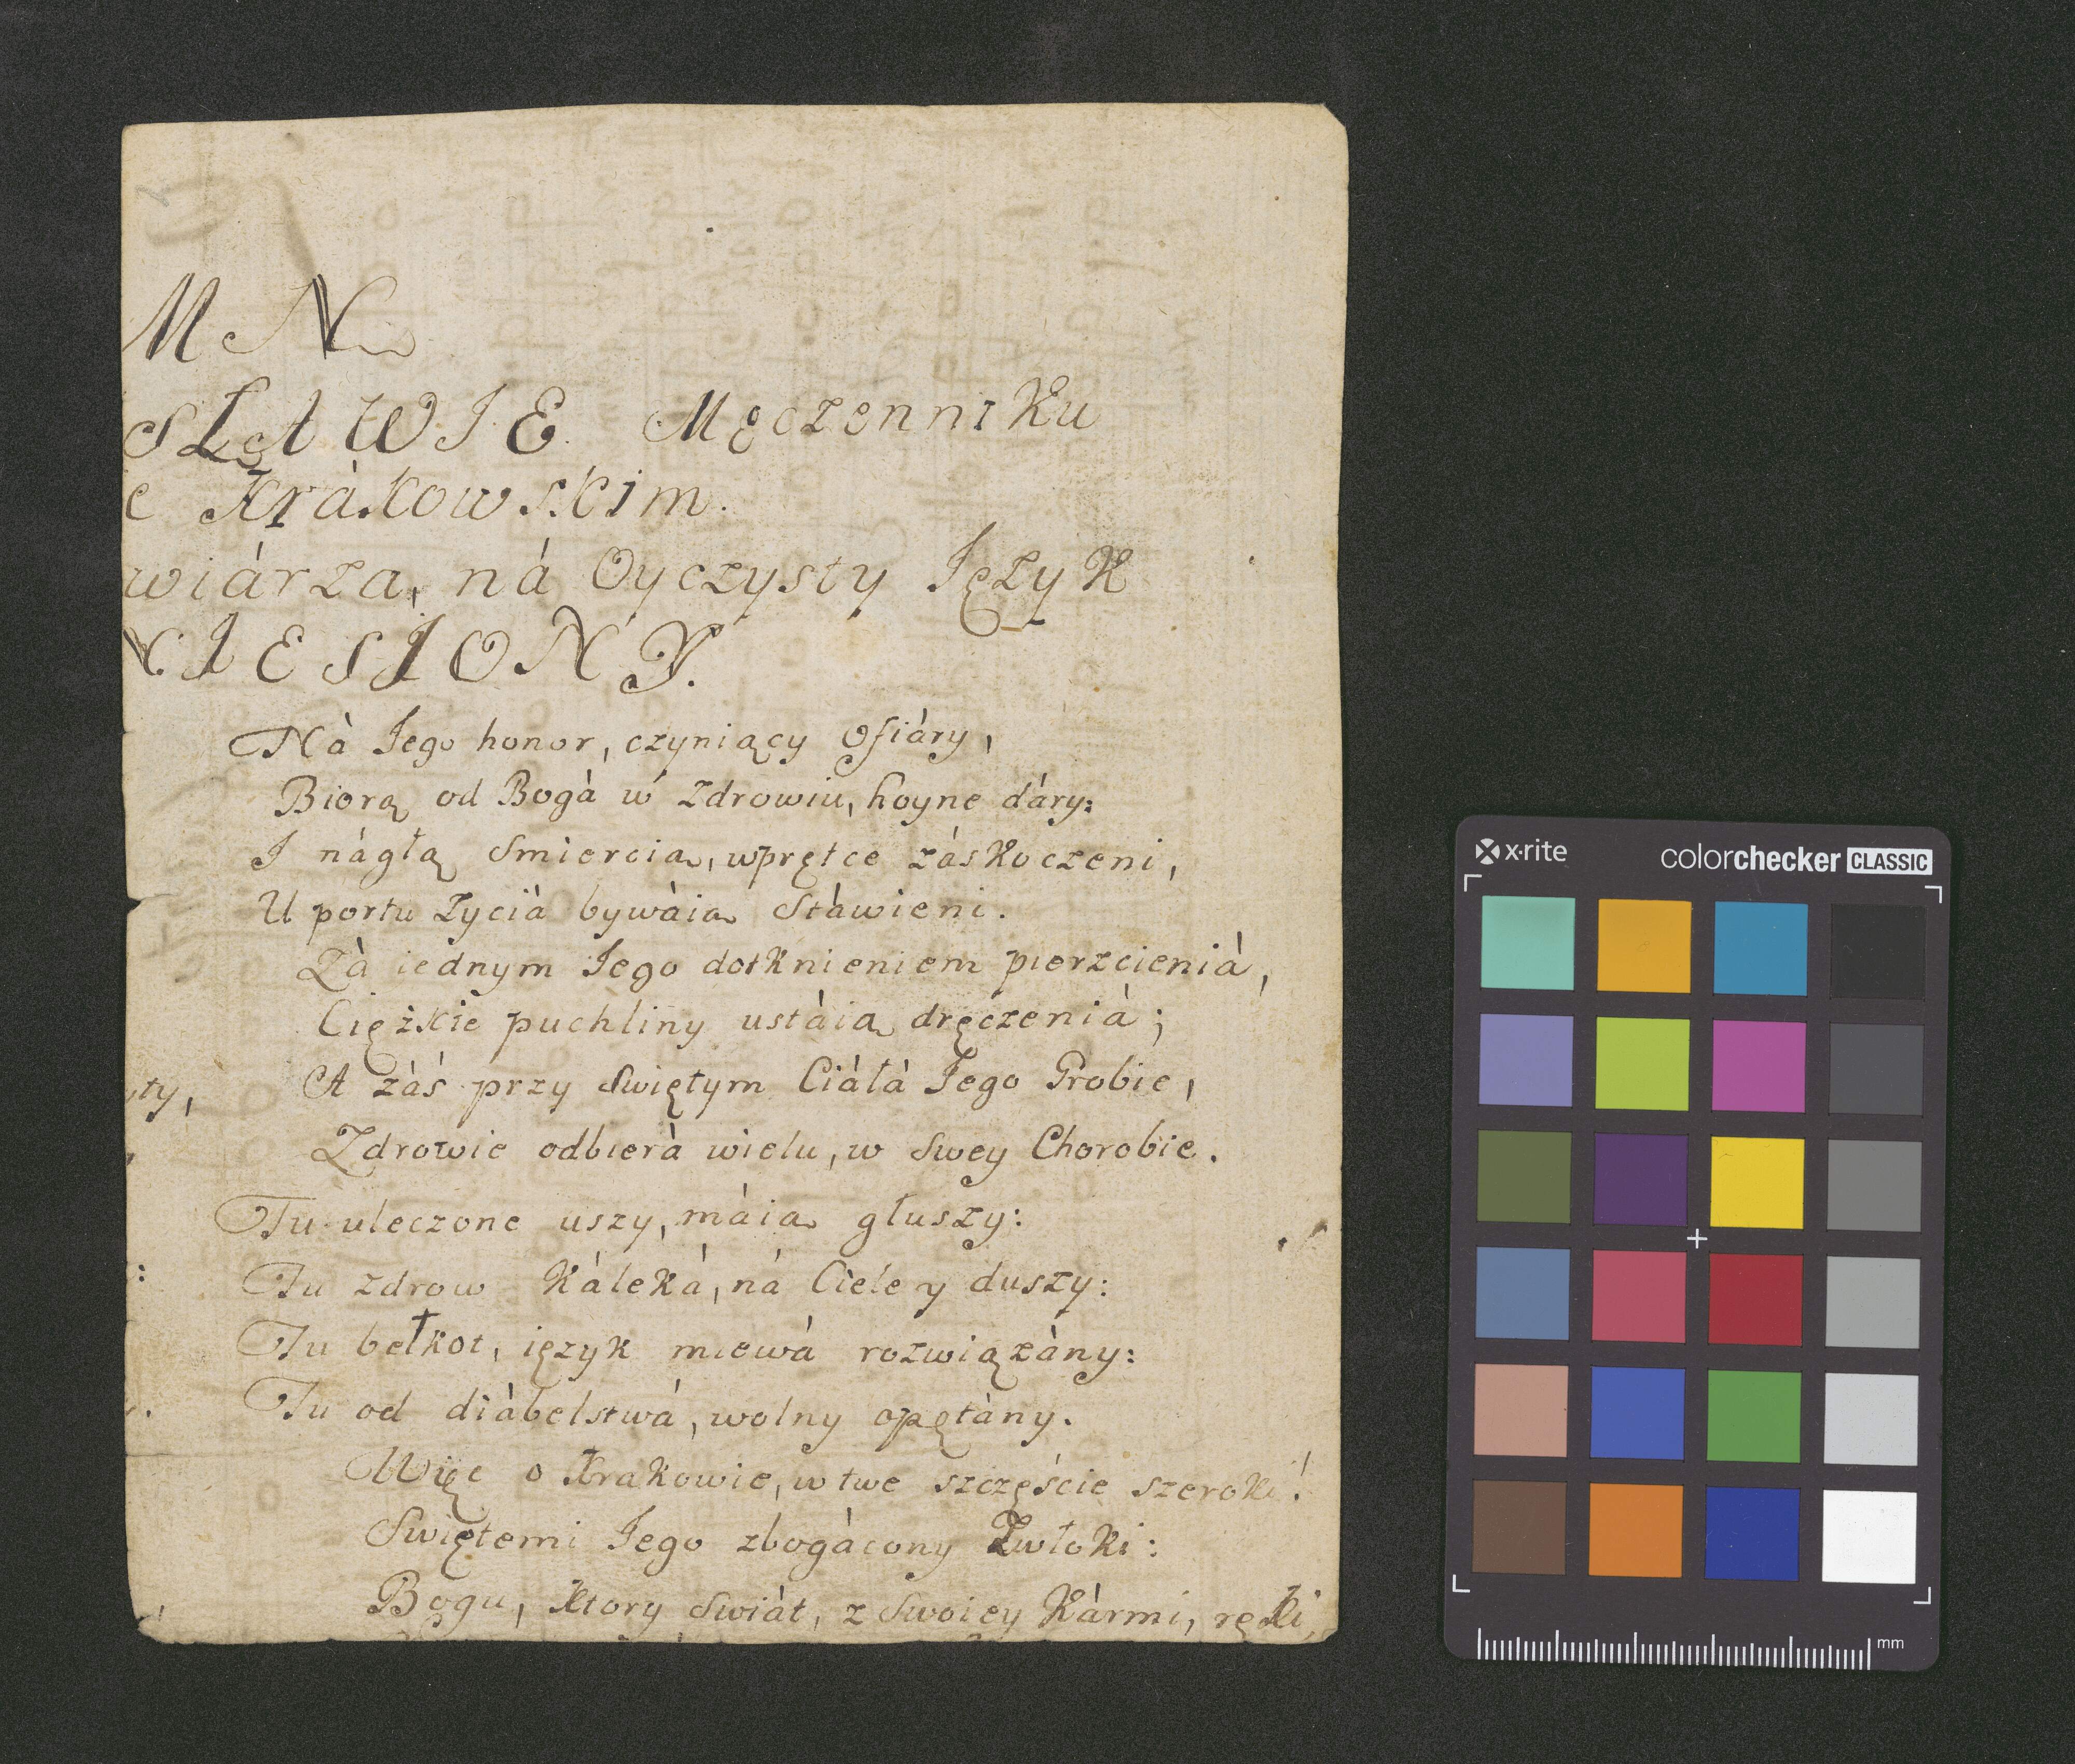 M N
SŁAWIE Męczenniku
e Kràkowskim.
wiárza, ná Oyczysty Ięzyk
NIESIONY.
Nà Iego honor, czyniący Ofiáry,
Biorą od Bogà w zdrowiu, hoyne dáry:
I nágłą Smiercią, wprętce záskoczeni,
U portu życià bywàią Stàwieni.
Zà iednym Iego dotknieniem pierzcienià,
Ciężkie puchliny ustàią dręczenià;
A zàś przy Swiętym Ciàłà Iego Grobie,
ty,
Zdrowie odbierà wielu, w Swey Chorobie.
Tu uleczone uszy, màią głuszy:
Tu zdrow Kàleká, ná Ciele y duszy:
:
Tu bełkot, ięzyk miewà rozwiązàny:
Tu od diàbelstwá, wolny opętàny.
.
Więc o Krakowie, w twe szczęście szeroki!
Swiętemi Iego zbogàcony Zwłoki:
Bogu, Ktory Swiát, z Swoiey Kàrmi, ręki,
x·rite
colorchecker CLASSIC
mm